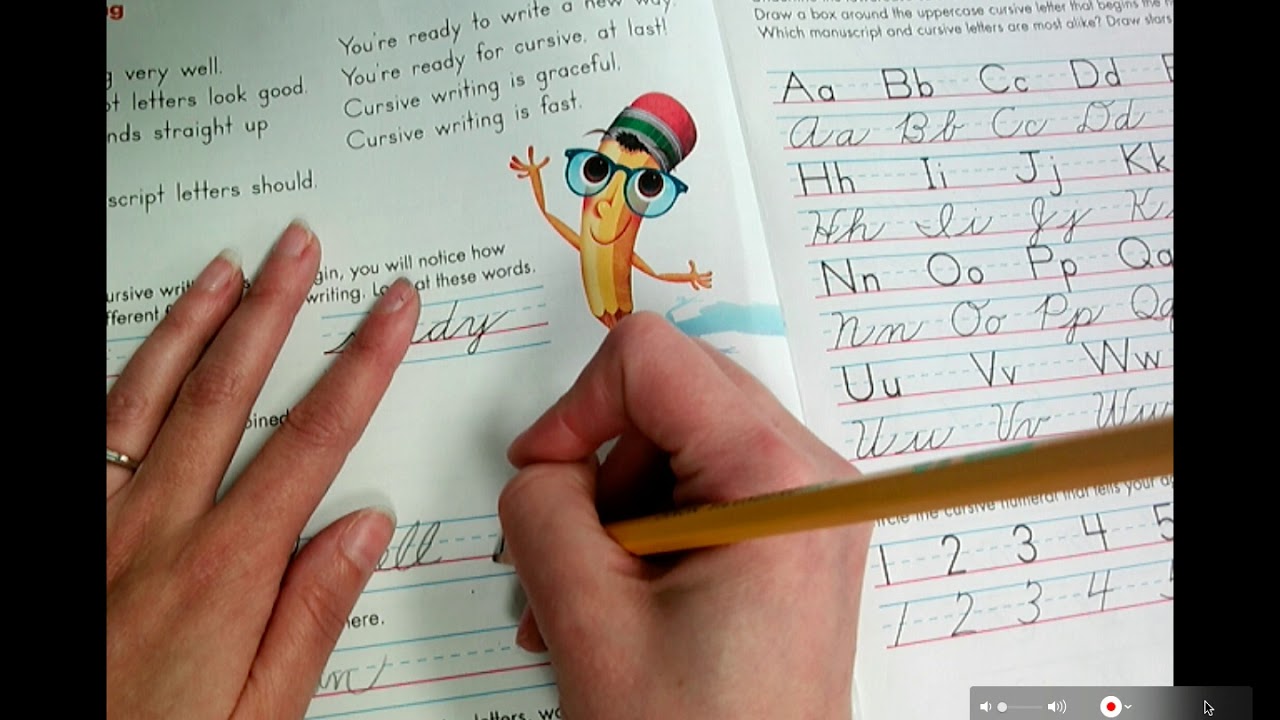 very well.
letters look good.
straight up
script letters should.
You're ready to write a new way.
You're ready for cursive, at last!
Cursive writing is graceful,
Cursive writing is fast.
you will notice how
writing. at these words.
ell
Draw a box around the uppercase cursive letter that begins the
Which manuscript and cursive letters are most alike? Draw stars
Aa Bb Cc Dd
Aa Bb Cc Dd
Hh Ii Jj Kk
Hh Ii Jj K
Nn Oo Pp Qq
Nn Oo Pp Qq
Uu Vv Ww
Uu Vv Ww
the cursive numeral that tells your
1 2 3 4 5
1 2 3 4